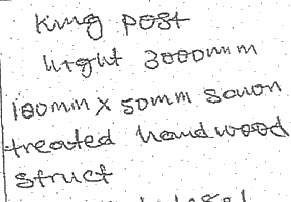 King post
hight 3000mm
100mm x 50mm sawn
treated hardwood
struct